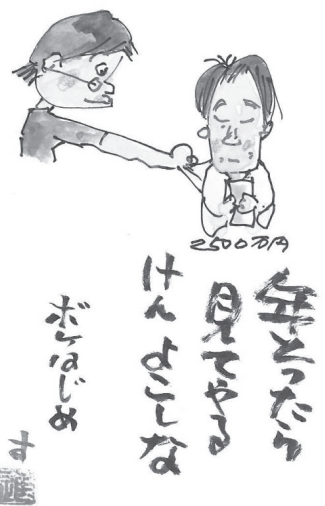 2500万円
年とったら
見てやる
けん よこしな
ボケはじめ
す